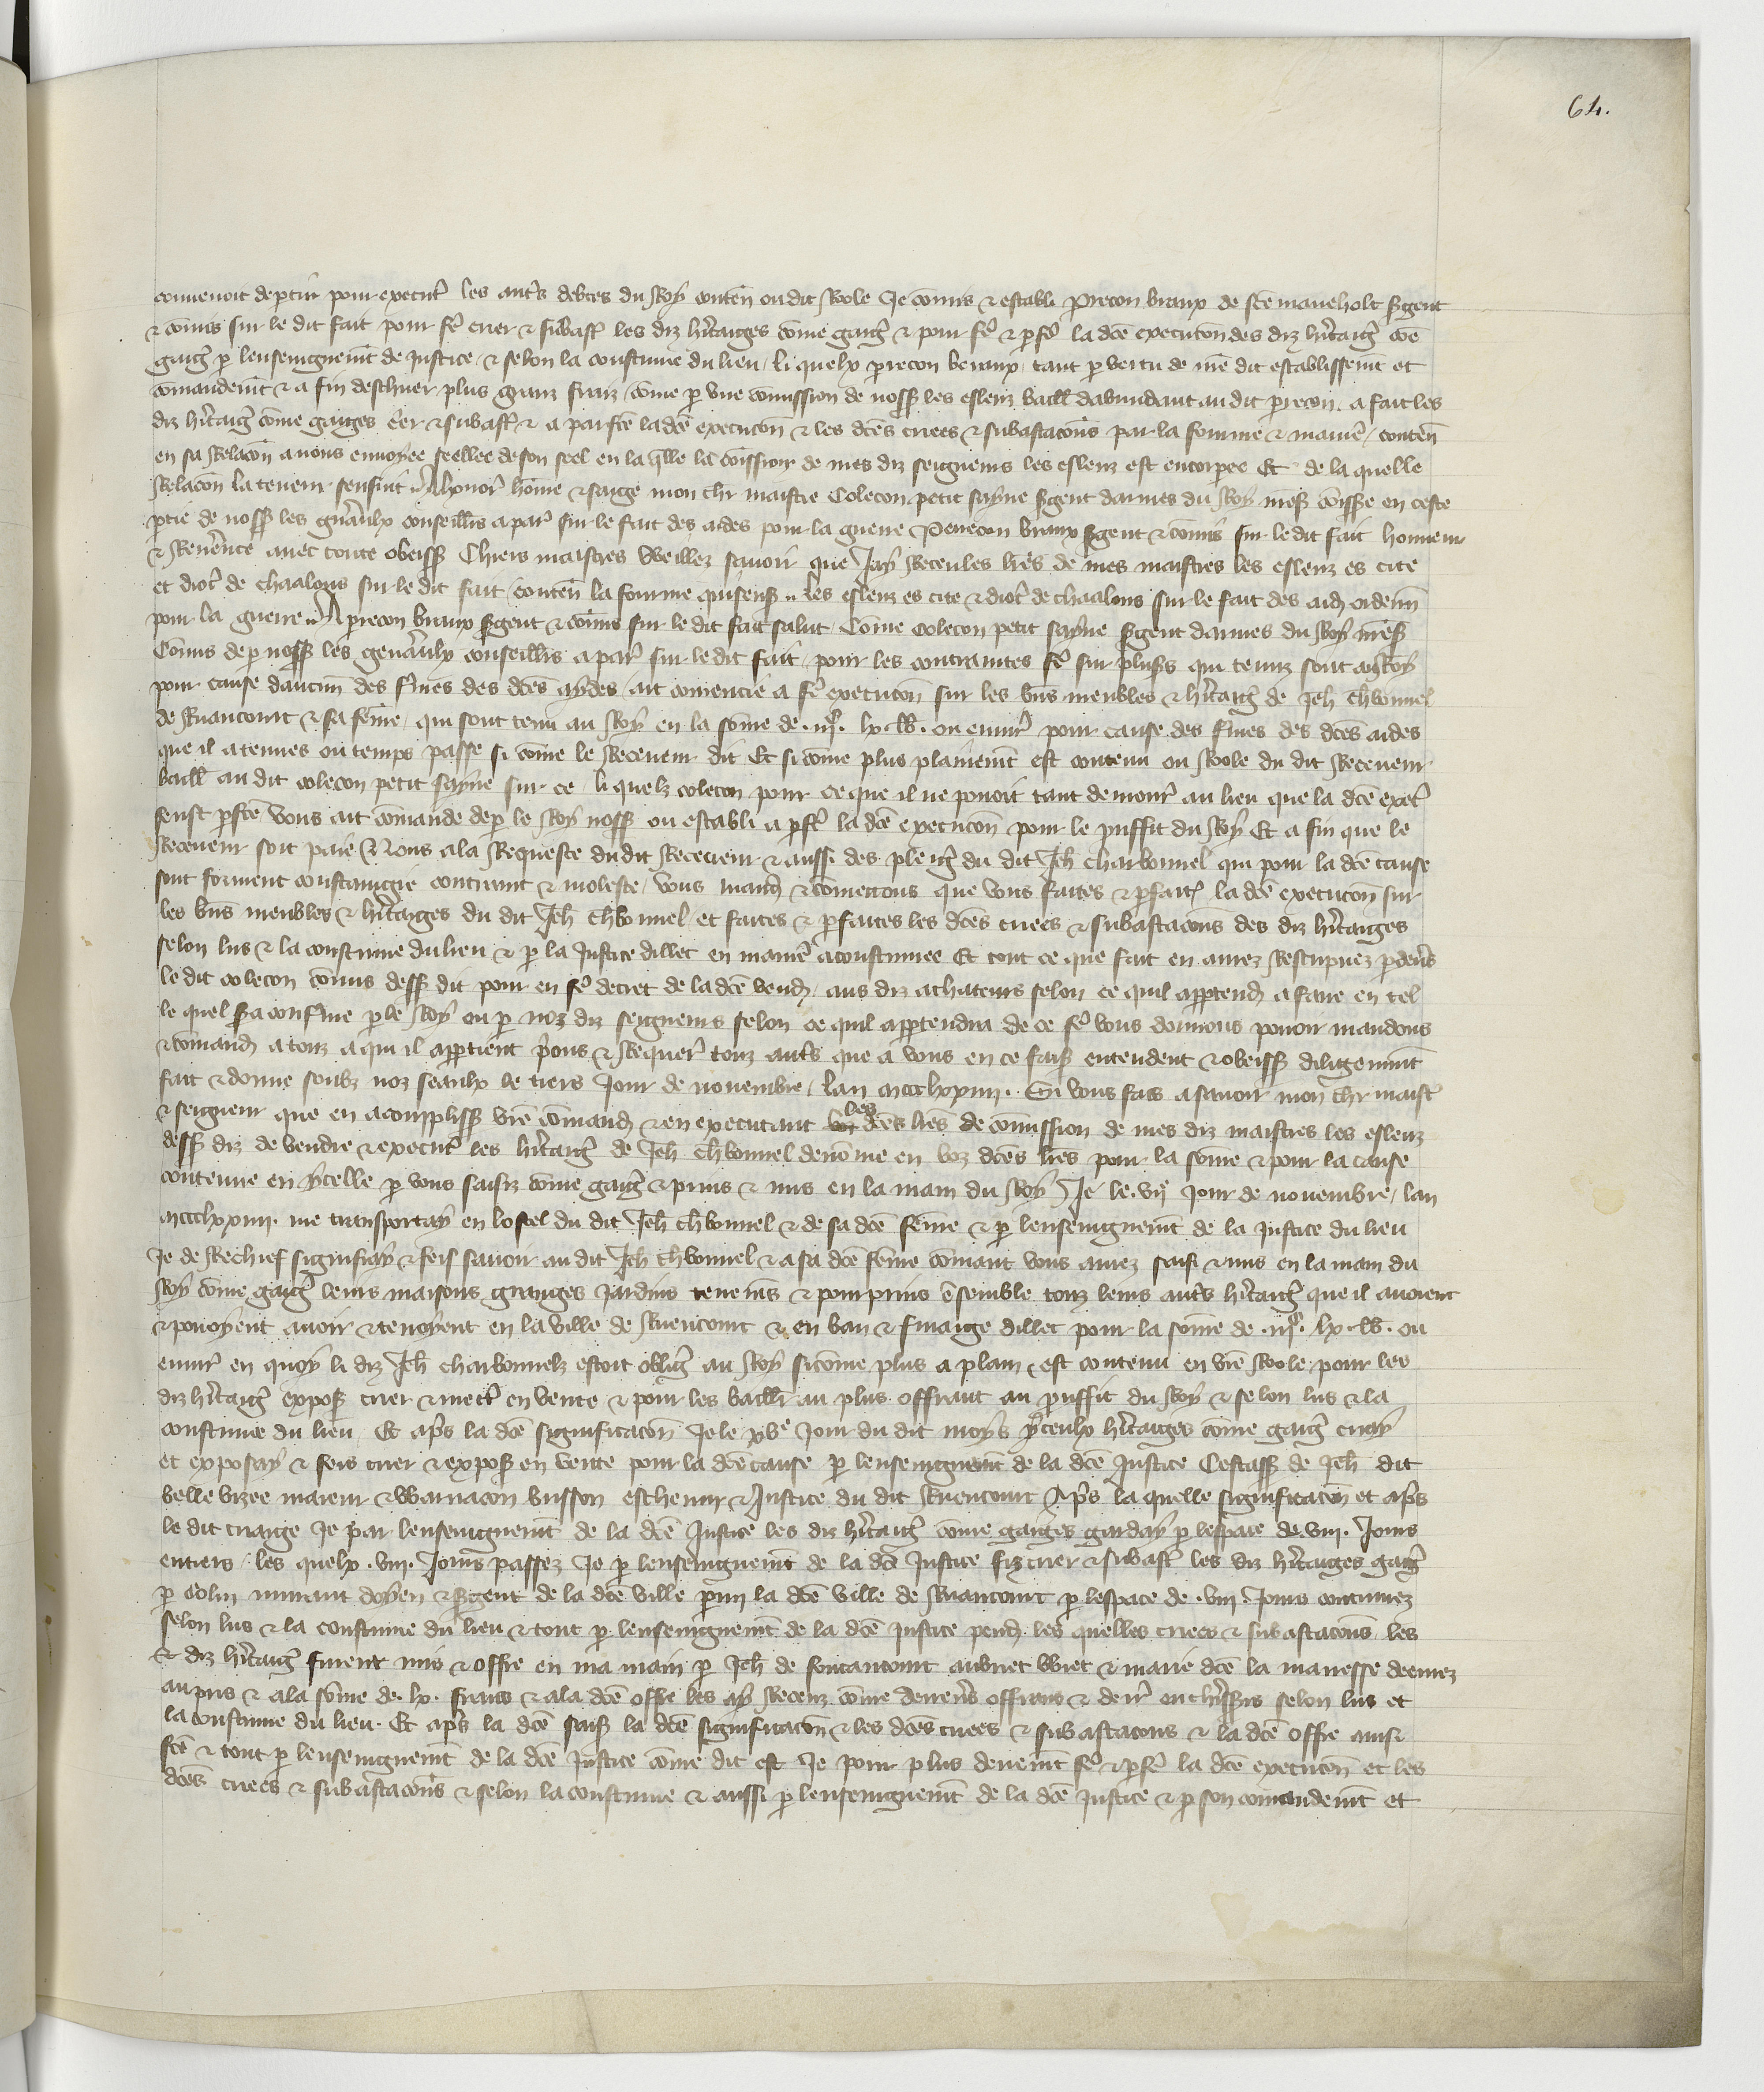 64.
convenoit departir pour executer les autres debtes du Roy conten ou dit Role Je comis & establi Precon braux de sce maneholt sgent
& comis sur le dit fait pour fe crier & subast les diz hitaiges come gaig & pour fe & pfe la dce execucon des diz hitaig coe
gaig p lenseignemt de justice & selon la coustume du lieu / li quelx precon beraux tant p vertu de me dit establissemt et
comandemt & a fin deschiuer plus granz fraiz come p vne comission de noss les esleuz baill dabundant au dit precon a fait les
diz hitaig come gaiges crier & subast & a parfce ladce execucon & les dces criees & subastacons par la fourme & maniere conten
en sa Relacon a nous enuoyee seellee de son seel en la qlle la comission de mes diz seigneurs les esleuz est encorpee Et de la quelle
Relacon la teneur sensuit Ahonor home & saige mon chr maistre Colecon petit sayne sgent darmes du Roy ness comisse en ceste
ptie de noss les gnaulx conseilles a par sur le fait des aides pour la guerre Perrecon braux sgent & comis sur le dit fait honneur
& Reuerence auec toute obeiss Chiers maistres Veillez sauoir que Jay Receu les lres de mes maistres les esleuz es cite
et dioc de chaalons sur le dit fait conten la fourme qui sens Les esleuz es cite & dioc de chaalons sur le fait des aid ordenn
pour la guerre A precon braux sgent & comis sur le dit fait salut Come colecon petit sayne sgent darmes du Roy ness
Comis de p noss les genaulx conseilles a par sur le dit fait pour les contraintes fe sur pluss qui tenuz sont au Roy
pour cause daucun des fmes des dces aydes ait comencie a fe execucon sur les bns meubles & hitaig de Jeh chbonnel
de Ruancourt & sa feme qui sont tenu au Roy en la some de . lx . lb . ou enuir pour cause des fmes des dces aides
que il a tenues ou temps passe si come le Receueur dit Et si come plus plainemt est contenu ou Role du dit Receueur
baill au dit colecon petit sayne sur ce li quelz colecon pour ce que il ne pouoit tant demour au lieu que la dce exec
feust pfce vous ait comande de p le Roy noss ou establi a pfe la dce execucon pour le puffit du Roy Et a fin que le
Receueur soit paie Nous a la Requeste du dit Receueur & aussi des pleig du dit Jeh charbonnel qui pour la dce cause
sont forment contraint & moleste vous mand & comettons que vous faites & pfait la dce execucon sur
les bns meubles & hitaiges du dit Jeh chbonnel et faites & pfaites les dces criees & subastacons des diz hitaiges
selon lus & la coustume du lieu & p la Justice dillec en maniere acoustumee Et tout ce que fait en aurez pdeus
le dit colecon comis dess dit pour en fe decret de la dce vend aus diz achateurs selon ce quil apptend a faire en tel
le quel sa confme p le Roy ou p noz diz seigneurs selon ce quil apptendra de ce fe vous donnons pouoir mandons
& comand a touz a qui il apptient pions & Requer touz auts que a vous en ce fais entendent & obeiss diligemmt
fait & donne soubz noz seaulx le tiers Jour de nouembre lan mccclxxiiii . Si vous fais a sauoir mon chr maist
& seigneur que en acompliss vre comand & en executant les dces lres de comission de mes diz maistres les esleuz
dess diz de vendre & execut les hitaig de Jeh chbonnel denome en voz dces lres pour la some & pour la cause
contenue en ycelle p vous saisiz come gaig & prins & mis en la main du Roy Je le vije Jour de nouembre lan
mccclxxiiii . me transportay en lostel du dit Jeh chbonnel & de sa dce feme & p lenseignemt de la justice du lieu
Je de Rechief signifiay & feis sauoir au dit Jeh chbonnel & a sa dce feme comant vous auez saisi & mis en la main du
Roy come gaig leurs maisons granges jardins tenems & pourprins ensemble touz leurs auts hitaig que il auoient
& pouoyent auoir & tenoyent en la ville de Ruencourt & en ban & finaige dillec pour la some de . lx . lb . ou
enuir en quoy li diz Jeh charbonnelz estoit oblig au Roy sicome plus a plain est contenu en vre Role pour les
diz hitaig expos crier & mett en vente & pour les baill au plus offrant au prouffit du Roy & selon lus & la
coustume du lieu Et aps la dce significacon Je le xve Jour du dit moys yceulx hitaiges come gaig criay
et exposay & feis crier & expos en vente pour la dce cause p lenseignemt de la dce Justice Cestass de Jeh dit
belle vizee maieur & Warnacon busson escheuin & Justice du dit Ruencourt Aps la quelle significacon et aps
le dit criaige Je par lenseignemt de la dce Justice les diz hitaig come gaiges garday p lespace de viii . Jours
entiers / les quelx . viii . Jours passez Je p lenseignemt de la dce Justice fiz crier & subast les diz hitaiges gaig
p colin doyen & sgent de la dce ville pmi la dce ville de Ruancourt p lespace de . viii . Jours continuez
selon lus & la coustume du lieu & tout p lenseignemt de la dce justice pend les quelles criees & subastacons les
& diz hitaig furent mis & offre en ma main p Jeh de fontancourt aubriet & marie dce la manesse
au pris & a la some de . lx . frans & a la dce offre les ay Receuz come derreners offrans & derr encherisses selon lus et
la coustume du lieu . Et aps la dce sais la dce significacon & les dces criees & subastacons & la dce offre ainsi
fce & tout p lenseignemt de la dce justice come dit est Je pour plus deuemt fe & pfe la dce execucon et les
dces criees & subastacons & selon la coustume & aussi p lenseignemt de la dce justice & p son comandemt et